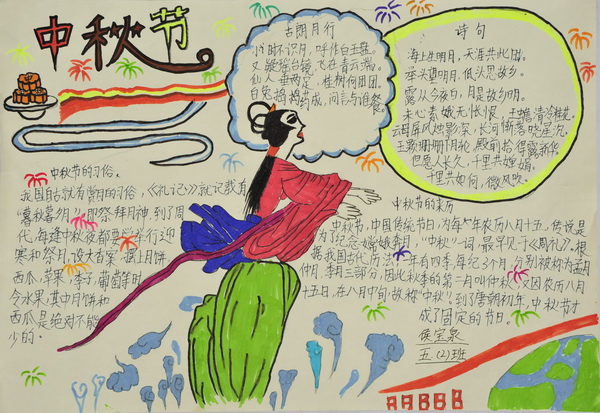 中秋节
古朗月行
小时不识月,呼作白玉盘。
又疑瑶台镜,飞在青云端。
仙人垂两足,桂树何团团。
白兔捣药成,问言与谁餐
诗句
海上生明月,天涯共此时。
举头望明月,低头思故乡。
露从今夜白,月是故乡明。
未必素娥无怅恨,玉蟾清冷桂花
云母屏风烛影深,长河渐落晓星沉。
但愿人长久,千里共婵娟。
千里共如何,微风吹
中秋节的习俗。
我国自古就有赏月的习俗,《礼记》就记载有
“秋暮夕月”,即祭拜月神,到了周
代,每逢中秋夜都要举行迎
寒和祭月,设大香案,摆上月饼
西瓜,苹果,李子,葡萄等时
令水果,其中月饼和
西瓜是绝对不能
少的。
中秋节的来历
中秋节,中国传统节日,为每年农历八月十五,传说是
为了纪念嫦娥奔月,“中秋”一词,最早见于《周礼》,根
据我国古代历法,一年有四季,每纪3个月,分别被称为孟月
仲月,季月三部分,因此秋季的第二月叫仲秋,又因农历八月
十五日,在八月中旬,故称“中秋”。到了唐朝初年,中秋节才
成了固定的节日。
侯宝泉
五(2)班